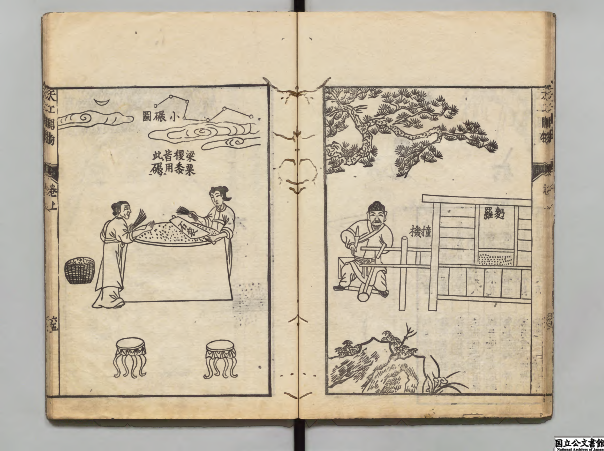 天工開物
麪羅
小碾圖
梁粟
稷黍
皆用
此碾
天工開物
卷上
国立公文書館
National Archives of Japan